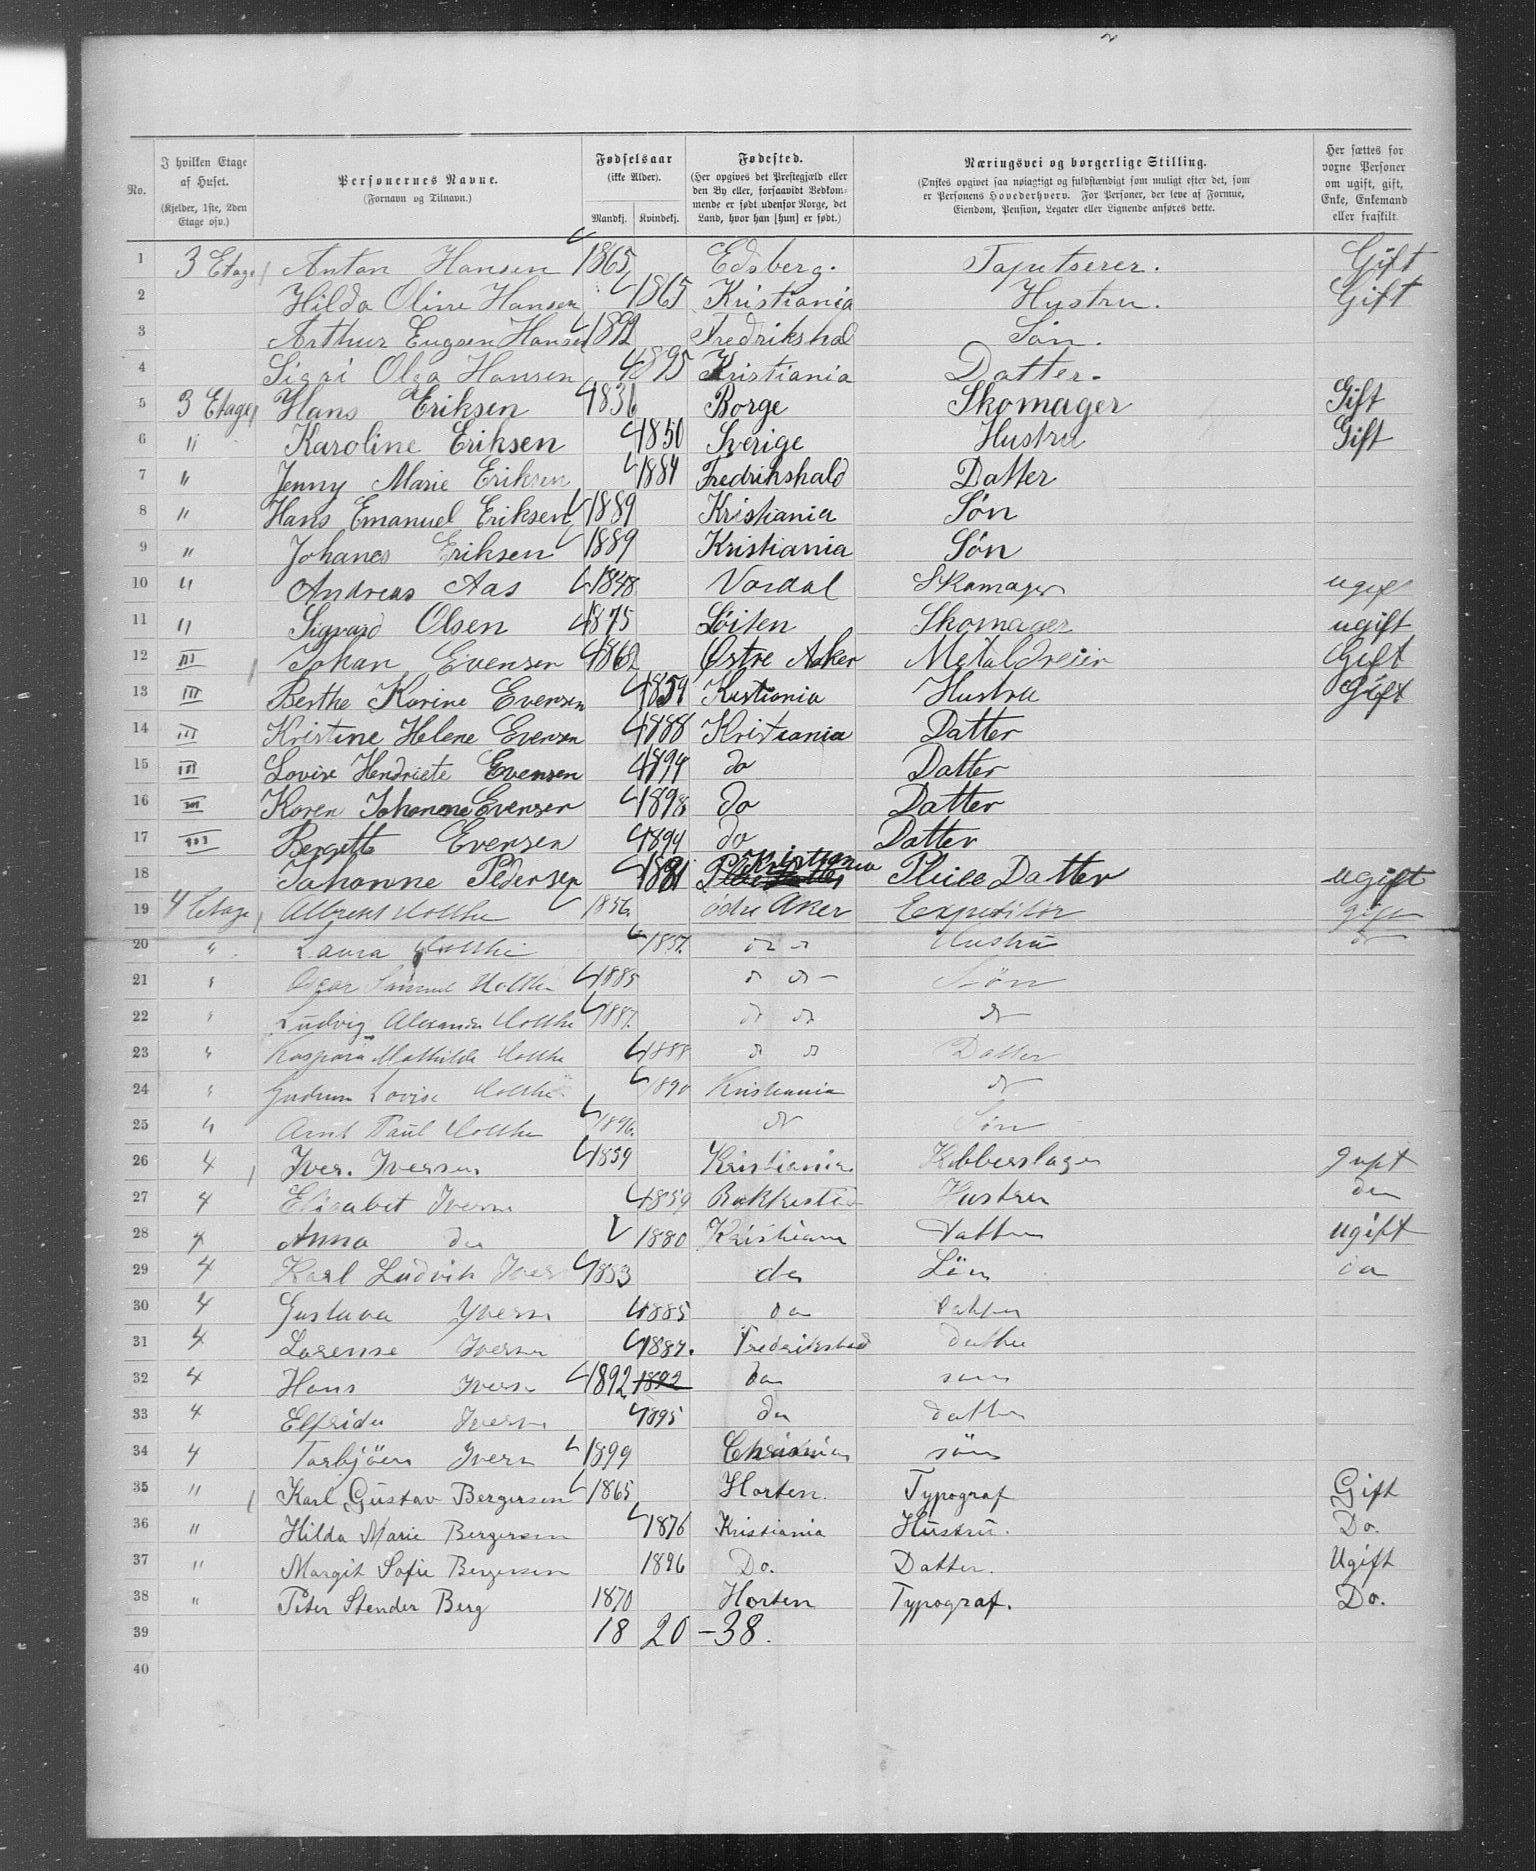 No. I hvilken Etage af Huset. (Kjelder, 1ste, 2den Etage osv.) Personernes Navne. (Fornavn og Tilnavn.) Fødselsaar (ikke Alder). Mandkj. Kvindekj. Fødested. (Her opgives det Prestegjæld eller den By eller, forsaavidt Vedkommende er født udenfor Norge, det Land, hvor han [hun] er født.) Næringsvei og borgerlige Stilling. (Ønskes opgivet saa nøiagtigt og fuldstændigt som muligt efter det, som er Personens Hovederhverv. For Personer, der leve af Formue, Eiendom, Pension, Legater eller Lignende anføres dette. Her sættes for voxne Personer om ugift, gift, Enke, Enkemand eller fraskilt.
1 3 Etage Anton Hansen 1865 Edsberg. Taputserer. Gift
2 Hilda Oline Hansen 1865 Kristiania Hustru. Gift
3 Arthur Eugen Hansen 1892 Fredrikshal Søn.
4 Sigri Olga Hansen 1895 Kristiania Datter.
5 3 Etage Hans Eriksen 1836 Borge Skomager Gift
6 " Karoline Eriksen 1850 Sverige Hustru Gift
7 " Jenny Marie Eriksen 1884 Fredrikshald Datter
8 " Hans Emanuel Eriksen 1889 Kristiania Søn
9 " Johanes Eriksen 1889 Kristiania Søn
10 " Andreas Aas 1848 Skomager ugift
11 " Sigvard Olsen 1875 Løiten Skomager ugift
12 III Johan Evensen 1862 Østre Aaker Metaldreier Gift
13 III Berthe Karine Evensen 1859 Kristiania Hustru Gift
14 III Kristine Helene Evensen 1888 Kristiania Datter
15 III Lovise Hendriete Evensen 1894 do Datter
16 III Karen Johanne Evensen 1898 do Datter
17 III Bergette Evensen 1894 do Datter
18 Johanne Pedersen 1881 Kristiania Pleie Datter ugift
19 4 Etage Albrekt Holthe 1856 Aker Expeditør gift
20 " Laura Holthe 1857. do Hustru do
21 " Oscar Samuel Holthe 1885 do do Søn
22 " Ludvig Alexander Holthe 1887. do do do
23 " Kaspara Mathilde Holthe 1888 do do Datter
24 " Gudrun Lovise Holthe 1890 Kristiania do
25 " Arnt Paul Holthe 1896. do Søn
26 4 Iver Iversen 1859 Kristiania Kobberslager gift
27 4 Elisabet Iversn 1859 Hustru do
28 4 Anna do 1880 Kristiania datter ugift
29 4 Karl Ludvik Iver 1883 do Sön do
30 4 Gustava Yversn 1885 do datter
31 4 Lorense Iversn 1887. Fredrikstad datter
32 4 Hans Iversn 1892 1892 do søn
33 4 Elfrida Iversn 1895 do datter
34 4 Torbjöen Iversn 1899 søn
35 " Karl Gustav Bergersen 1865 Horten. Typograf Gift
36 " Hilda Marie Bergersen 1876 Kristiania Hustru. Do.
37 " Margit Sofie Bergersen 1896 Do. Datter. Ugift
38 " Peter Stender Berg 1870 Horten Typograf. Do.
39 18 20 -38.
40